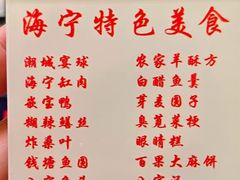 海宁特色美食
潮城宴球 农家羊酥方
海宁缸肉 白醋鱼羹
嵌宝鸭 芽麦圆子
糊辣鳝丝 臭苋菜梗
炸桑叶 眼睛糕
钱塘鱼圆 百果大麻饼